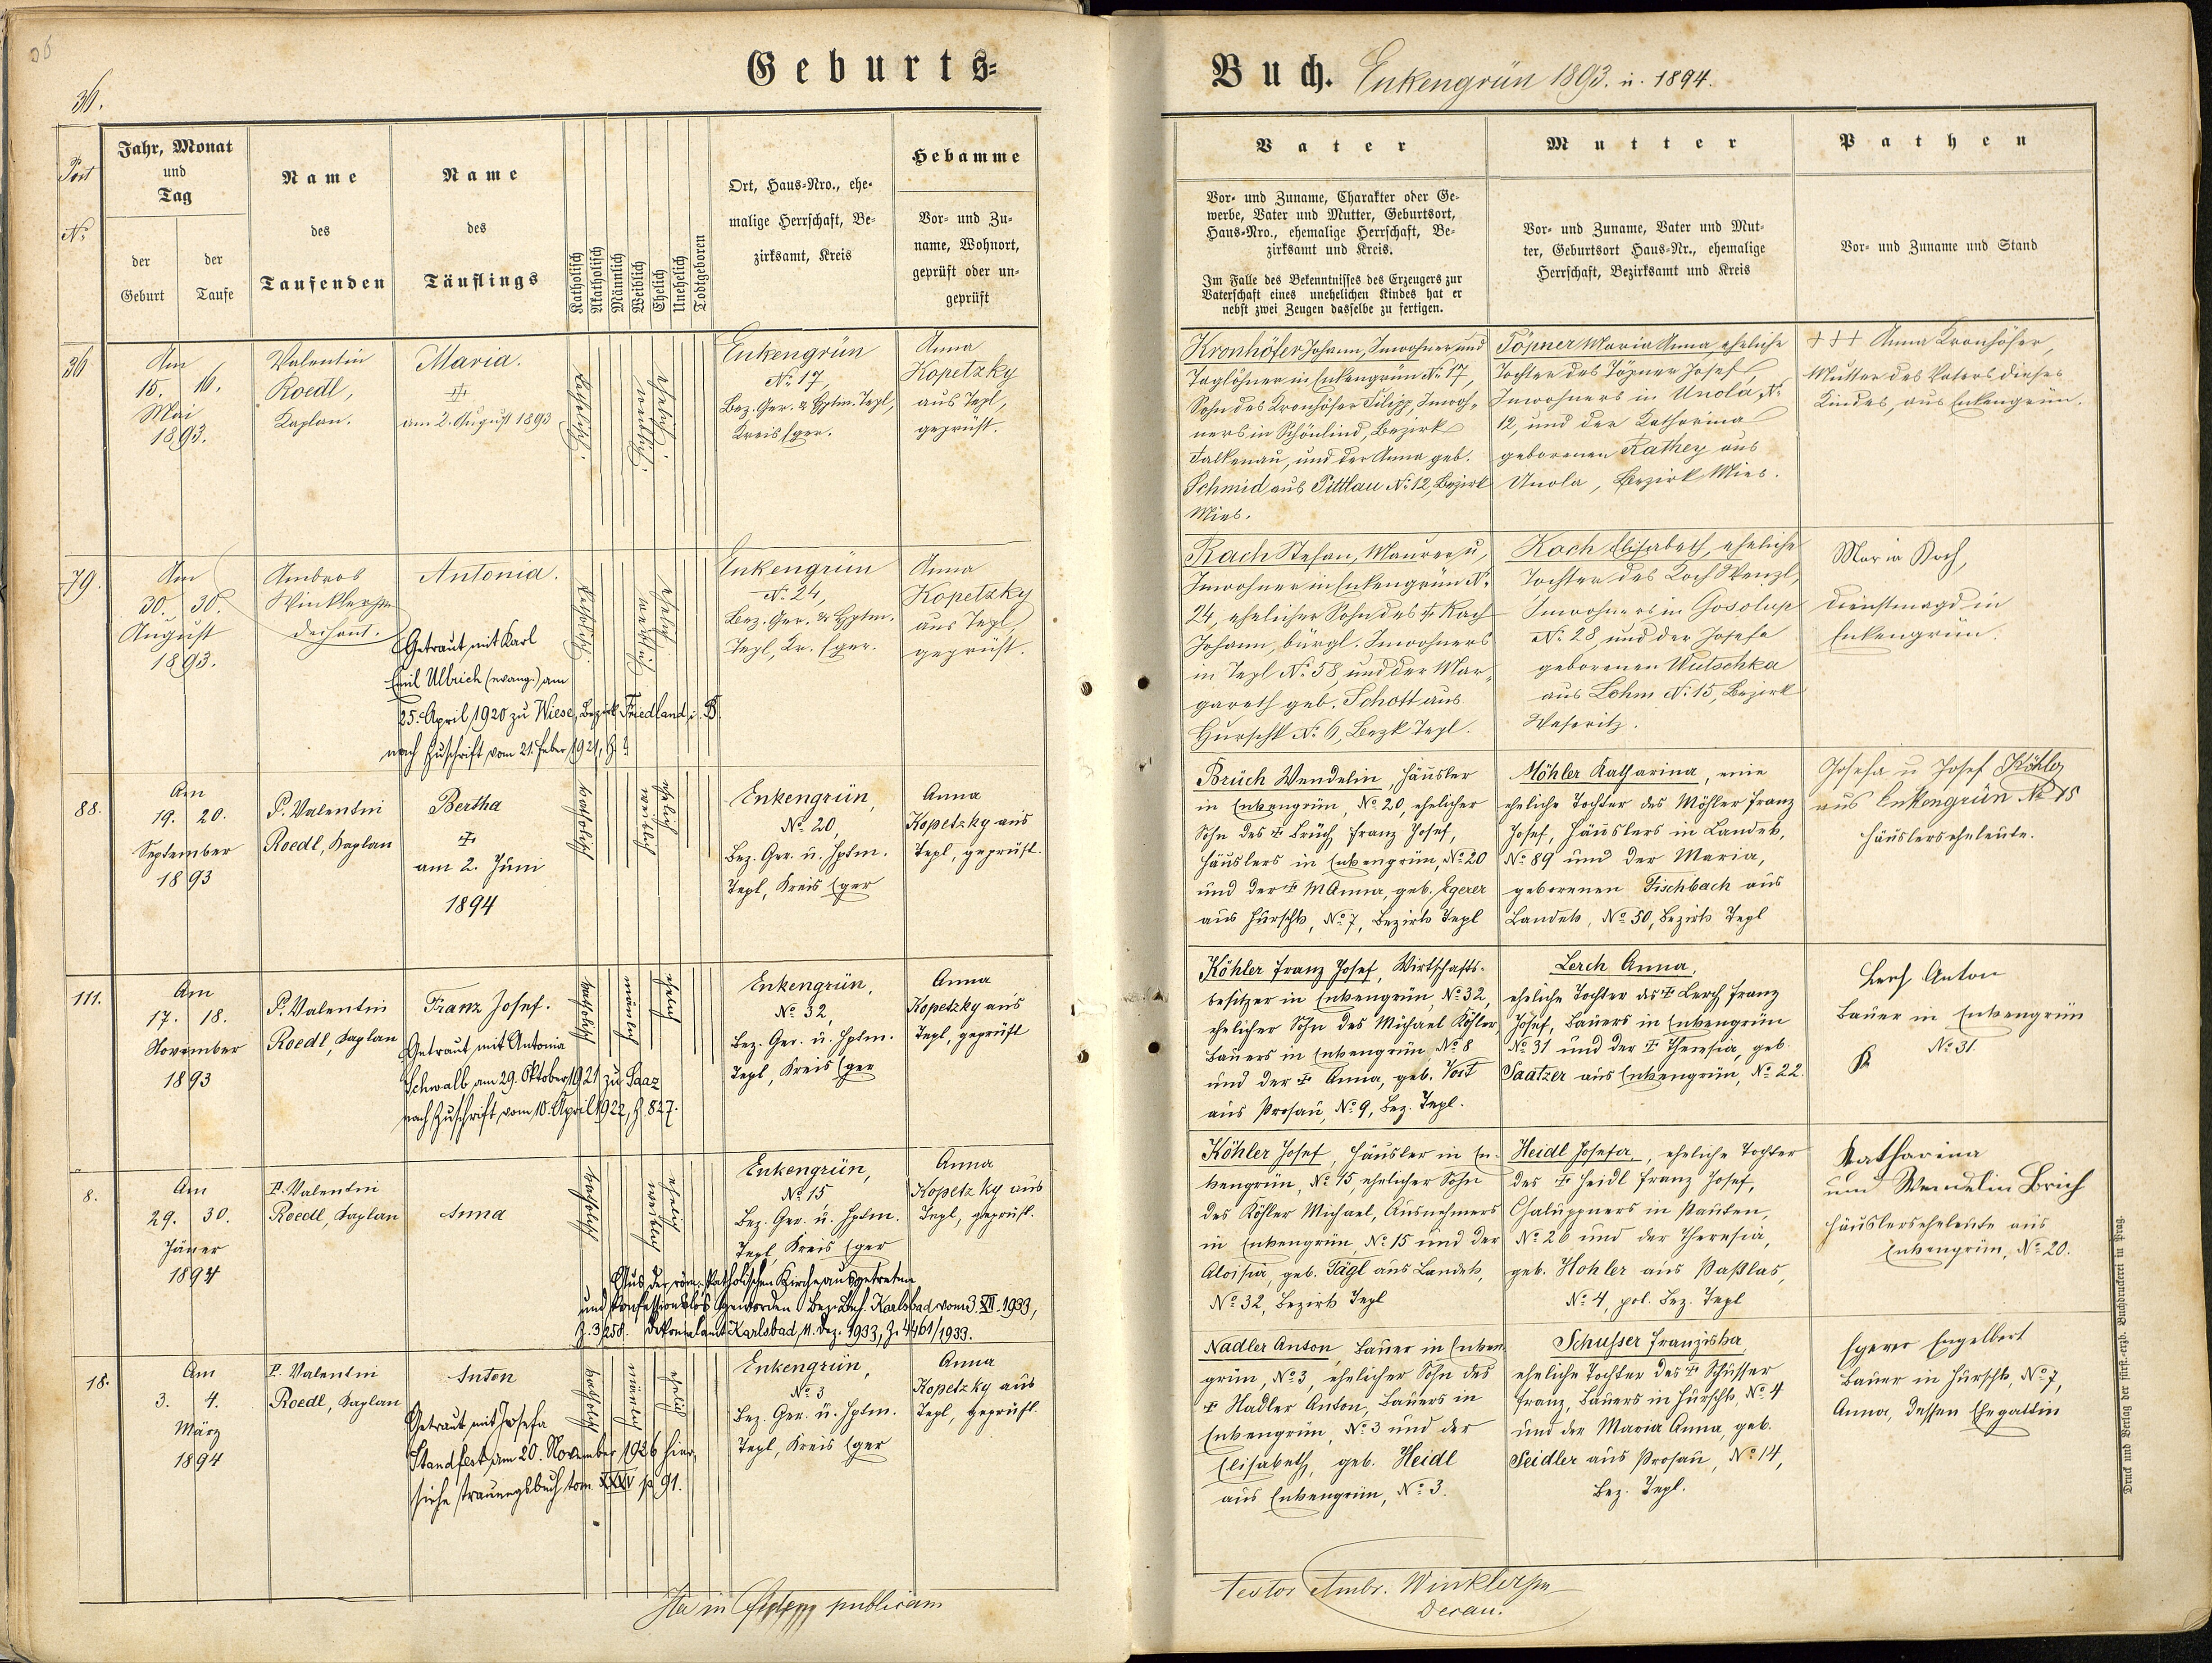 36.
Geburts=
Buch. Enkengrün 1893. u. 1894.
Post
No
Jahr, Monat
und
Tag
der
Geburt
der
Taufe
Name
des
Taufenden
Name
des
Täuflings
Katholisch
Akatholisch
Männlich
Weiblich
Ehelich
Unehelich
Todtgeboren
Ort, Haus-Nro., ehe-
malige Herrschaft, Be-
zirksamt, Kreis
Hebamme
Vor- und Zu-
name, Wohnort,
geprüft oder un-
geprüft
Vater
Vor- und Zuname, Charakter oder Ge-
werbe, Vater und Mutter, Geburtsort,
Haus-Nro., ehemalige Herrschaft, Be-
zirksamt und Kreis.
Im Falle des Bekenntnisses des Erzeugers zur
Vaterschaft eines unehelichen Kindes hat er
nebst zwei Zeugen dasselbe zu fertigen.
Mutter
Vor- und Zuname, Vater und Mut-
ter, Geburtsort Haus-Nr., ehemalige
Herrschaft, Bezirksamt und Kreis
Pathen
Vor- und Zuname und Stand
36
Am
15. 16.
Mai
1893.
Valentin
Roedl,
Kaplan.
Maria.
am 2. August 1893
katholisch.
weiblich.
ehelich.
Enkengrün
No. 17,
Bez. Ger. & Hptm. Tepl,
Kreis Eger.
Anna
Kopetzky
aus Tepl,
geprüft.
Kronhöfer Johann, Inwohner und
Taglöhner in Enkengrün No. 17,
Sohn des Kronhöfer Filipp, Inwoh-
ners in Schönlind, Bezirk
Falkenau, und der Anna geb.
Schmid aus Pittlau No. 12, Bezirk
Mies.
Töpner Maria Anna, eheliche
Tochter des Töpner Josef,
Inwohners in Unola No.
12, und der Katharina
geborenen Rathey aus
Unola, Bezirk Mies.
+++ Anna Kronhöfer,
Mutter des Vaters dieses
Kindes, aus Enkengrün.
79.
Am
30. 30.
August
1893.
Ambros
Winkler
Dechant.
Antonia.
Getraut mit Karl
Emil Ulbrich (evang.) am
25. April 1920 zu Wiese, Bezirk Friedland i. B.
nach Zuschrift vom 21. Feber 1921, Z.
katholisch.
weiblich.
ehelich.
Enkengrün
No. 24,
Bez. Ger. & Hptm.
Tepl, Kr. Eger.
Anna
Kopetzky
aus Tepl,
geprüft.
Rach Stefan, Maurer u.
Inwohner in Enkengrün No.
24, ehelicher Sohn des † Rach
Johann, bürgl. Inwohners
in Tepl No. 58 und der Mar-
gareth geb. Schott aus
Hurschk No. 6, Bezk Tepl.
Koch Elisabeth, eheliche
Tochter des Koch Wenzl,
Inwohners in Gosolup
No. 28 und der Josefa
geborenen Wutschka
aus Lohm No. 15, Bezirk
Weseritz.
Maria Koch,
Dienstmagd in
Enkengrün.
88.
Am
19. 20.
September
1893
P. Valentin
Roedl, Kaplan
Bertha
†
am 2. Juni
1894
katholisch
weiblich
ehelich
Enkengrün,
No. 20,
Bez. Ger. u. Hptm.
Tepl, Kreis Eger
Anna
Kopetzky aus
Tepl, geprüft.
Brüch Wendelin, Häusler
in Enkengrün, No. 20, ehelicher
Sohn des † Brüch Franz Josef,
Häuslers in Enkengrün, No. 20
und der † M Anna, geb. Egerer
aus Hurschk, No. 7, Bezirk Tepl
Möhler Katharina, eine
eheliche Tochter des Möhler Franz
Josef, Häuslers in Landek,
No. 89 und der Maria,
geborenen Fischbach aus
Landek, No. 50, Bezirk Tepl
Josefa u Josef Köhler
aus Enkengrün No 15
Häuslerseheleute.
111.
Am
17. 18.
November
1893
P. Valentin
Roedl, Kaplan
Franz Josef.
Getraut mit Antonia
Schwalb am 29. Oktober 1921 zu Saaz
nach Zuschrift vom 10. April 1922, Z. 827.
katholisch
männlich
ehelich
Enkengrün,
No. 32,
Bez. Ger. u. Hptm.
Tepl, Kreis Eger
Anna
Kopetzky aus
Tepl, geprüft
Köhler Franz Josef, Wirtschafts-
besitzer in Enkengrün, No. 32,
ehelicher Sohn des Michael Köhler,
Bauers in Enkengrün, No. 8
und der † Anna, geb. Vost
aus Prosau, No. 9, Bez. Tepl.
Lerch Anna,
eheliche Tochter des † Lerch Franz
Josef, Bauers in Enkengrün
No. 31 und der † Theresia, geb.
Saatzer aus Enkengrün, No. 22.
Lerch Anton
Bauer in Enkengrün
No. 31.
8.
Am
29. 30.
Jäner
1894
P. Valentin
Roedl, Kaplan
Anna
katholisch
weiblich
ehelich
Enkengrün,
No. 15
Bez. Ger. u. Hptm.
Tepl, Kreis Eger
Aus der röm. katholischen Kirche ausgetreten
und konfessionslos geworden Bez. Beh. Karlsbad vom 3. XII. 1933,
Z. 3/258. Dekanalamt Karlsbad, 11. Dez. 1933, Z. 4461/1933.
Anna
Kopetzky aus
Tepl, geprüft.
Köhler Josef, Häusler in En-
kengrün, No. 15, ehelicher Sohn
des Köhler Michael, Ausnehmers
in Enkengrün, No. 15 und der
Aloisia, geb. Tägl aus Landek,
No. 32, Bezirk Tepl
Heidl Josefa, eheliche Tochter
des † Heidl Franz Josef,
Chaluppners in Pauten,
No. 26 und der Theresia,
geb. Hohler aus Paßlas,
No. 4, pol. Bez. Tepl
Katharina
und Wendelin Brich
Häuslerseheleute aus
Enkengrün, No. 20.
18.
Am
3. 4.
März
1894
P. Valentin
Roedl, Kaplan
Anton
Getraut mit Josefa
Standfest am 20. November 1926 hier,
siehe Trauungsbuch tom XXXV p 91.
katholisch
männlich
ehelich
Enkengrün,
No. 3
Bez. Ger. u. Hptm.
Tepl, Kreis Eger
Anna
Kopetzky aus
Tepl, geprüft
Nadler Anton, Bauer in Enken-
grün, No. 3, ehelicher Sohn des
† Nadler Anton, Bauers in
Enkengrün, No. 3 und der
Elisabeth, geb. Heidl
aus Enkengrün, No. 3.
Schusser Franziska,
eheliche Tochter des † Schusser
Franz, Bauers in Hurschk, No. 4
und der Maria Anna, geb.
Seidler aus Prosau, No. 14,
Bez. Tepl.
Egerer Engelbert
Bauer in Hurschk, No. 7,
Anna, dessen Ehegattin
Ita in fidem publicam
testor Ambr. Winkler
Decan.
Druck und Verlag der fürst.-erzb. Buchdruckerei in Prag.